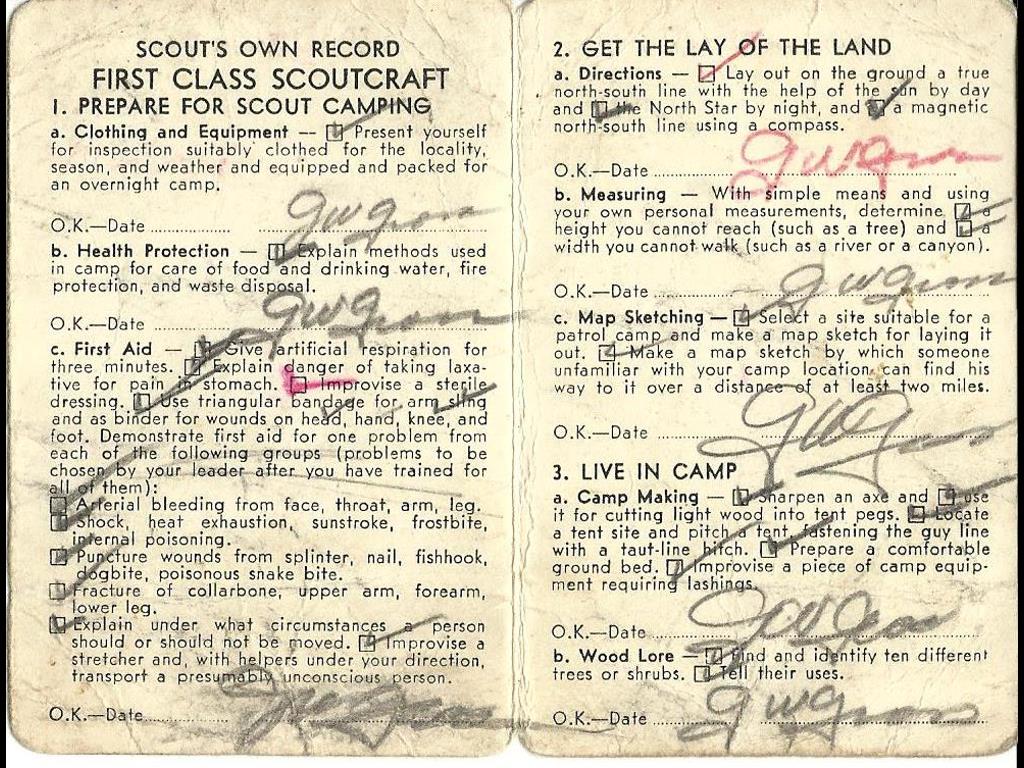 SCOUT'S OWN RECORD
FIRST CLASS SCOUTCRAFT
1. PREPARE FOR SCOUT CAMPING
a. Clothing and Equipment -- Present yourself
for inspection suitably clothed for the locality,
season, and weather and equipped and packed for
an overnight camp.
O.K.—Date
b. Health Protection — Explain methods used
in camp for care of food and drinking water, fire
protection, and waste disposal.
O.K.—Date
c. First Aid — Give artificial respiration for
three minutes. Explain danger of taking laxa-
tive for pain in stomach. Improvise a sterile
dressing. Use triangular bandage for arm sling
and as binder for wounds on head, hand, knee, and
foot. Demonstrate first aid for one problem from
each of the following groups (problems to be
chosen by your leader after you have trained for
all of them):
Arterial bleeding from face, throat, arm, leg.
Shock, heat exhaustion, sunstroke, frostbite,
internal poisoning.
Puncture wounds from splinter, nail, fishhook,
dogbite, poisonous snake bite.
Fracture of collarbone, upper arm, forearm,
lower leg.
Explain under what circumstances a person
should or should not be moved. Improvise a
stretcher and, with helpers under your direction,
transport a presumably unconscious person.
O.K.—Date
2. GET THE LAY OF THE LAND
a. Directions — Lay out on the ground a true
north-south line with the help of the sun by day
and the North Star by night, and a magnetic
north-south line using a compass.
O.K.—Date
b. Measuring — With simple means and using
your own personal measurements, determine a
height you cannot reach (such as a tree) and a
width you cannot walk (such as a river or a canyon).
O.K.—Date
c. Map Sketching — Select a site suitable for a
patrol camp and make a map sketch for laying it
out. Make a map sketch by which someone
unfamiliar with your camp location can find his
way to it over a distance of at least two miles.
O.K.—Date
3. LIVE IN CAMP
a. Camp Making — Sharpen an axe and use
it for cutting light wood into tent pegs. Locate
a tent site and pitch a tent, fastening the guy line
with a taut-line hitch. Prepare a comfortable
ground bed. Improvise a piece of camp equip-
ment requiring lashings.
O.K.—Date
b. Wood Lore — Find and identify ten different
trees or shrubs. Tell their uses.
O.K.—Date